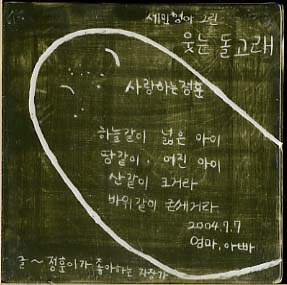 세민 형아 그린
웃는 돌고래
사랑하는 정훈
하늘같이 넓은 아이
땅같이 어진 아이
산같이 크거라
바위같이 굳세거라
2004.7.7
엄마, 아빠
글~정훈이가 좋아하는 자장가